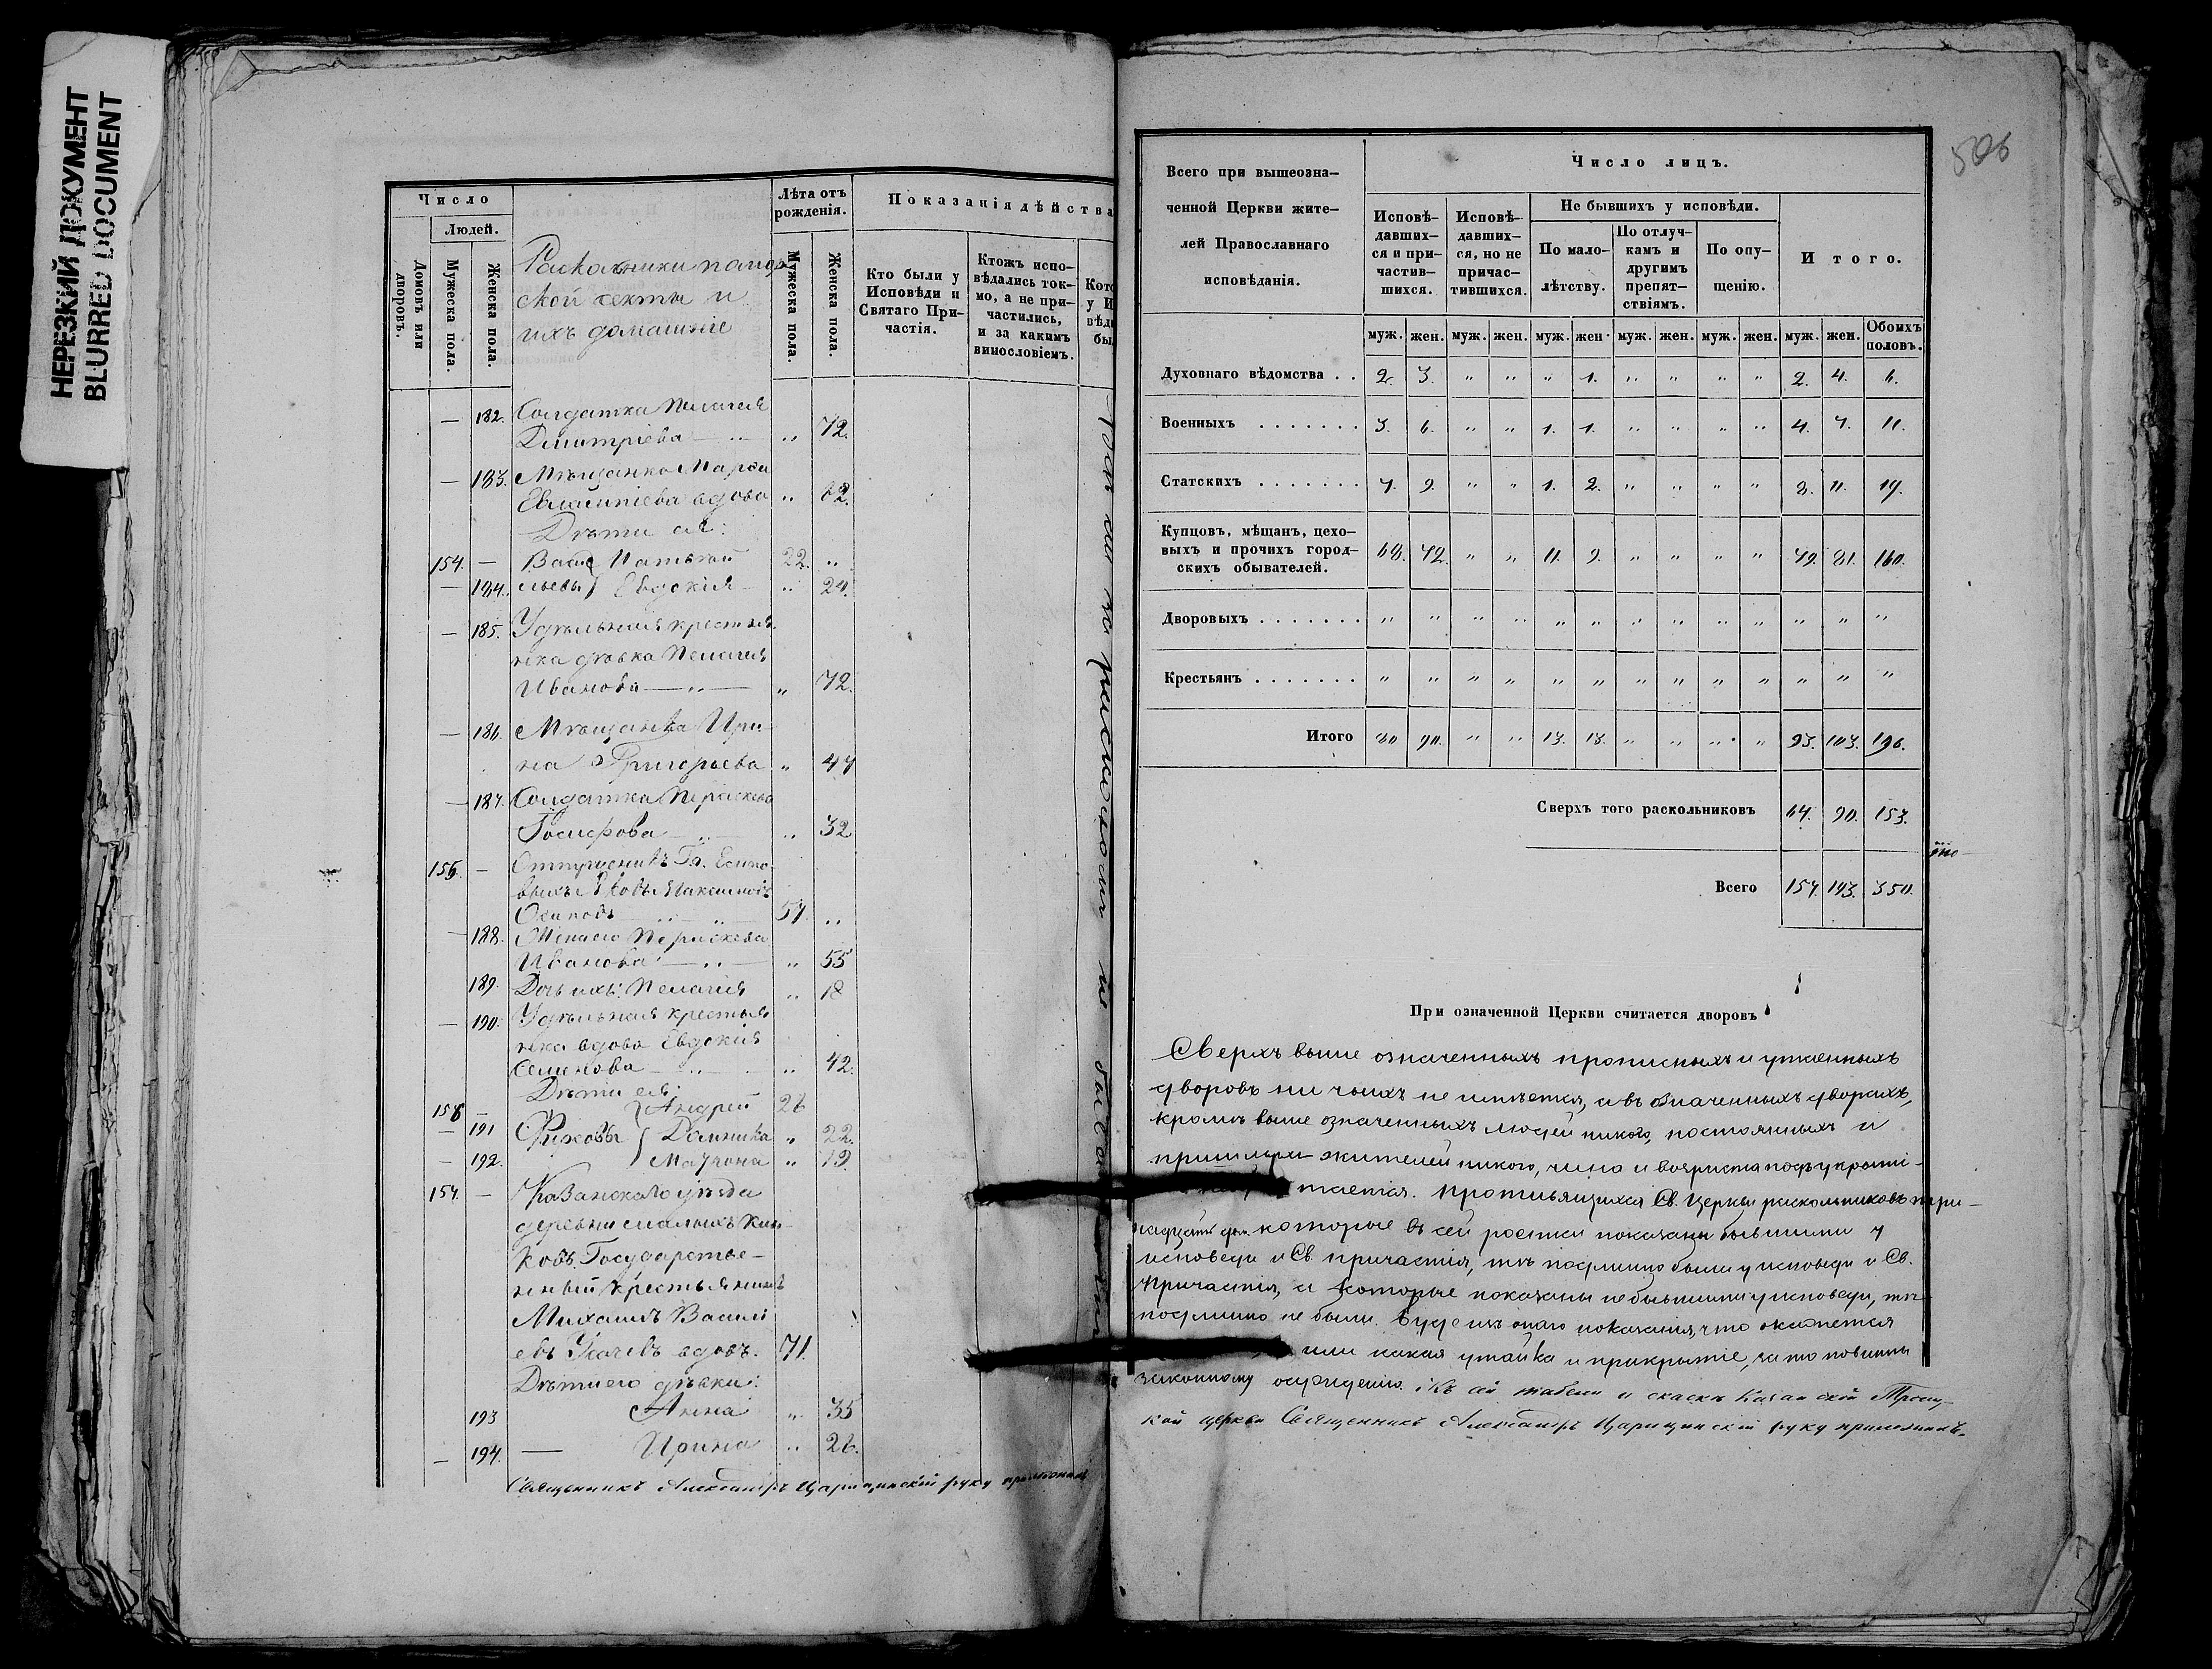 НЕРЕЗКИЙ ДОКУМЕНТ
BLURRED DOCUMENT
Число
Людей.
Домовъ или дворовъ.
Мужеска пола.
Женска пола.
Раскольники
ской секты и
ихъ домашніе
Лѣта отъ рожденія.
Мужеска пола.
Женска пола.
Показанія дѣйства
Кто были у Исповѣди и Святаго Причастія.
Ктожъ исповѣдались токмо, а не причастились, и за какимъ винословіемъ.
— 182. Солдатка Пелагея
Дмитріева — „ 72.
— 183. Мѣщанка Марѳа
вдова „ 62.
Дѣти ея:
154. — 22. „
— 184. льевы Евдокія „ 24.
— 185. Удѣльная крестья
нка дѣвка Пелагея
Иванова — „ — „ 72.
— 186. Мѣщанка Ири
на Григорьева „ 47
— 187. Солдатка Параскева
Іосифова — „ 32
155. —
Осиповъ 57 „
— 188. Жена его Параскева
Иванова — „ — „ 55
189. Дочь ихъ: Пелагея „ 18
— 190. Удѣльная крестья
нка вдова Евдокія
Семенова — „ 42.
Дѣти ея:
156 — Андрей 26
— 191 „ 22.
— 192. Матрона „ 19.
157. — Казанскаго уѣзда
деревни малыхъ
ковъ Государстве-
нный крестьянинъ
Михаилъ Василі
евъ вдовъ. 71.
Дѣти его дѣвки:
193 Анна „ 35
— 194. — Ирина „ 26.
Священникъ Александръ Царицинскій руку приложилъ
506
Всего при вышеозначенной Церкви жителей Православнаго исповѣданія.
Число лицъ.
Исповѣдавшихся и причастившихся.
Исповѣдавшихся, но не причастившихся.
Не бывшихъ у исповѣди.
По малолѣтству.
По отлучкамъ и другимъ препятствіямъ.
По опущенію.
Итого.
муж. жен. муж. жен. муж. жен. муж. жен. муж. жен. муж. жен. Обоихъ половъ.
Духовнаго вѣдомства . . 2. 3. „ „ „ 1. „ „ „ „ 2. 4. 6.
Военныхъ . . . . . . . 3. 6. „ „ 1. 1. „ „ „ „ 4. 7. 11.
Статскихъ . . . . . . . 7. 9. „ „ 1. 2. „ „ „ „ 8. 11. 19.
Купцовъ, мѣщанъ, цеховыхъ и прочихъ городскихъ обывателей. 68. 72. „ „ 11. 9. „ „ „ „ 79. 81. 160.
Дворовыхъ . . . . . . . „ „ „ „ „ „ „ „ „ „ „ „ „
Крестьянъ . . . . . . . „ „ „ „ „ „ „ „ „ „ „ „ „
Итого 80 90. „ „ 13. 13. „ „ „ „ 93. 103. 196.
Сверхъ того раскольниковъ 64. 90. 153.
Всего 157. 193. 350.
При означенной Церкви считается дворовъ
Сверхъ выше означенныхъ прописныхъ и утаенныхъ
дворовъ ни чьихъ не имѣется, а въ означенныхъ дворахъ,
кромѣ выше означенныхъ людей никого, постоянныхъ и
пришлыхъ жителей никого, чина и возраста
тается. Противящихся Св. Церкви раскольниковъ
которые въ сей росписи показаны бывшими у
исповеди и Св. причастія, тѣ подлинно были у исповеди и Св.
Причастія, а которые показаны небывшими у исповеди, тѣ
подлинно не были. Буде изъ онаго показанія, что окажется
или какая утайка и прикрытіе, за то повинны
законному осужденію. Къ сей табели и сказкѣ Казанской Троиц-
кой церкви Священникъ Александръ Царицинскій руку приложилъ.